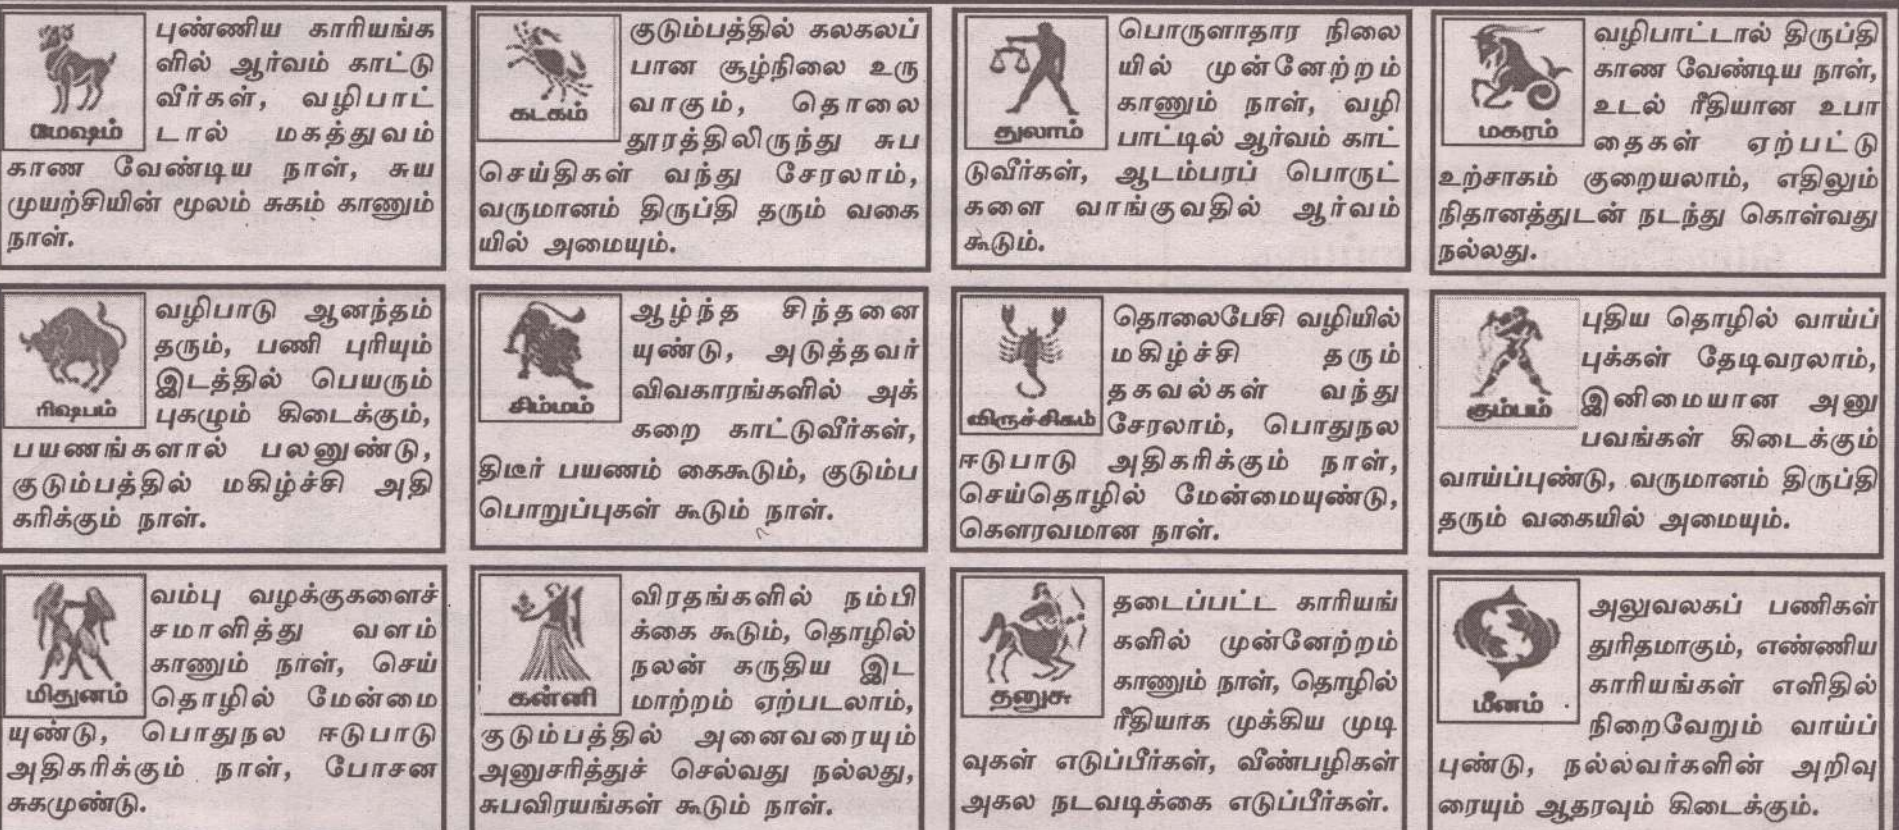 புண்ணிய காரியங்க
ளில் ஆர்வம் காட்டு
வீர்கள், வழிபாட்
டால் மகத்துவம்
மேஷம்
காண வேண்டிய நாள், சுய
முயற்சியின் மூலம் சுகம் காணும்
நாள்.
வழிபாடு ஆனந்தம்
தரும், பணி புரியும்
இடத்தில் பெயரும்
புகழும் கிடைக்கும்,
ரிஷபம்
பயணங்களால் பலனுண்டு,
குடும்பத்தில் மகிழ்ச்சி அதி
கரிக்கும் நாள்.
வம்பு வழக்குகளைச்
சமாளித்து வளம்
காணும் நாள், செய்
தொழில் மேன்மை
மிதுனம்
யுண்டு, பொதுநல ஈடுபாடு
அதிகரிக்கும் நாள், போசன
சுகமுண்டு.
குடும்பத்தில் கலகலப்
பான சூழ்நிலை உரு
வாகும், தொலை
கடகம்
தூரத்திலிருந்து சுப
செய்திகள் வந்து சேரலாம்,
வருமானம் திருப்தி தரும் வகை
யில் அமையும்.
ஆழ்ந்த சிந்தனை
யுண்டு, அடுத்தவர்
விவகாரங்களில் அக்
சிம்மம்
கறை காட்டுவீர்கள்,
திடீர் பயணம் கைகூடும், குடும்ப
பொறுப்புகள் கூடும் நாள்.
விரதங்களில் நம்பி
க்கை கூடும், தொழில்
நலன் கருதிய இட
கன்னி
மாற்றம் ஏற்படலாம்,
குடும்பத்தில் அனைவரையும்
அனுசரித்துச் செல்வது நல்லது,
சுபவிரயங்கள் கூடும் நாள்.
பொருளாதார நிலை
யில் முன்னேற்றம்
காணும் நாள், வழி
துலாம்
பாட்டில் ஆர்வம் காட்
டுவீர்கள், ஆடம்பரப் பொருட்
களை வாங்குவதில் ஆர்வம்
கூடும்.
தொலைபேசி வழியில்
மகிழ்ச்சி தரும்
தகவல்கள் வந்து
விருச்சிகம்
சேரலாம், பொதுநல
ஈடுபாடு அதிகரிக்கும் நாள்,
செய்தொழில் மேன்மையுண்டு,
கௌரவமான நாள்.
தடைப்பட்ட காரியங்
களில் முன்னேற்றம்
காணும் நாள், தொழில்
தனுசு
ரீதியாக முக்கிய முடி
வுகள் எடுப்பீர்கள், வீண்பழிகள்
அகல நடவடிக்கை எடுப்பீர்கள்.
வழிபாட்டால் திருப்தி
காண வேண்டிய நாள்,
உடல் ரீதியான உபா
மகரம்
தைகள் ஏற்பட்டு
உற்சாகம் குறையலாம், எதிலும்
நிதானத்துடன் நடந்து கொள்வது
நல்லது.
புதிய தொழில் வாய்ப்
புக்கள் தேடிவரலாம்,
இனிமையான அனு
கும்பம்
பவங்கள் கிடைக்கும்
வாய்ப்புண்டு, வருமானம் திருப்தி
தரும் வகையில் அமையும்.
அலுவலகப் பணிகள்
துரிதமாகும், எண்ணிய
காரியங்கள் எளிதில்
மீனம்
நிறைவேறும் வாய்ப்
புண்டு, நல்லவர்களின் அறிவு
ரையும் ஆதரவும் கிடைக்கும்.